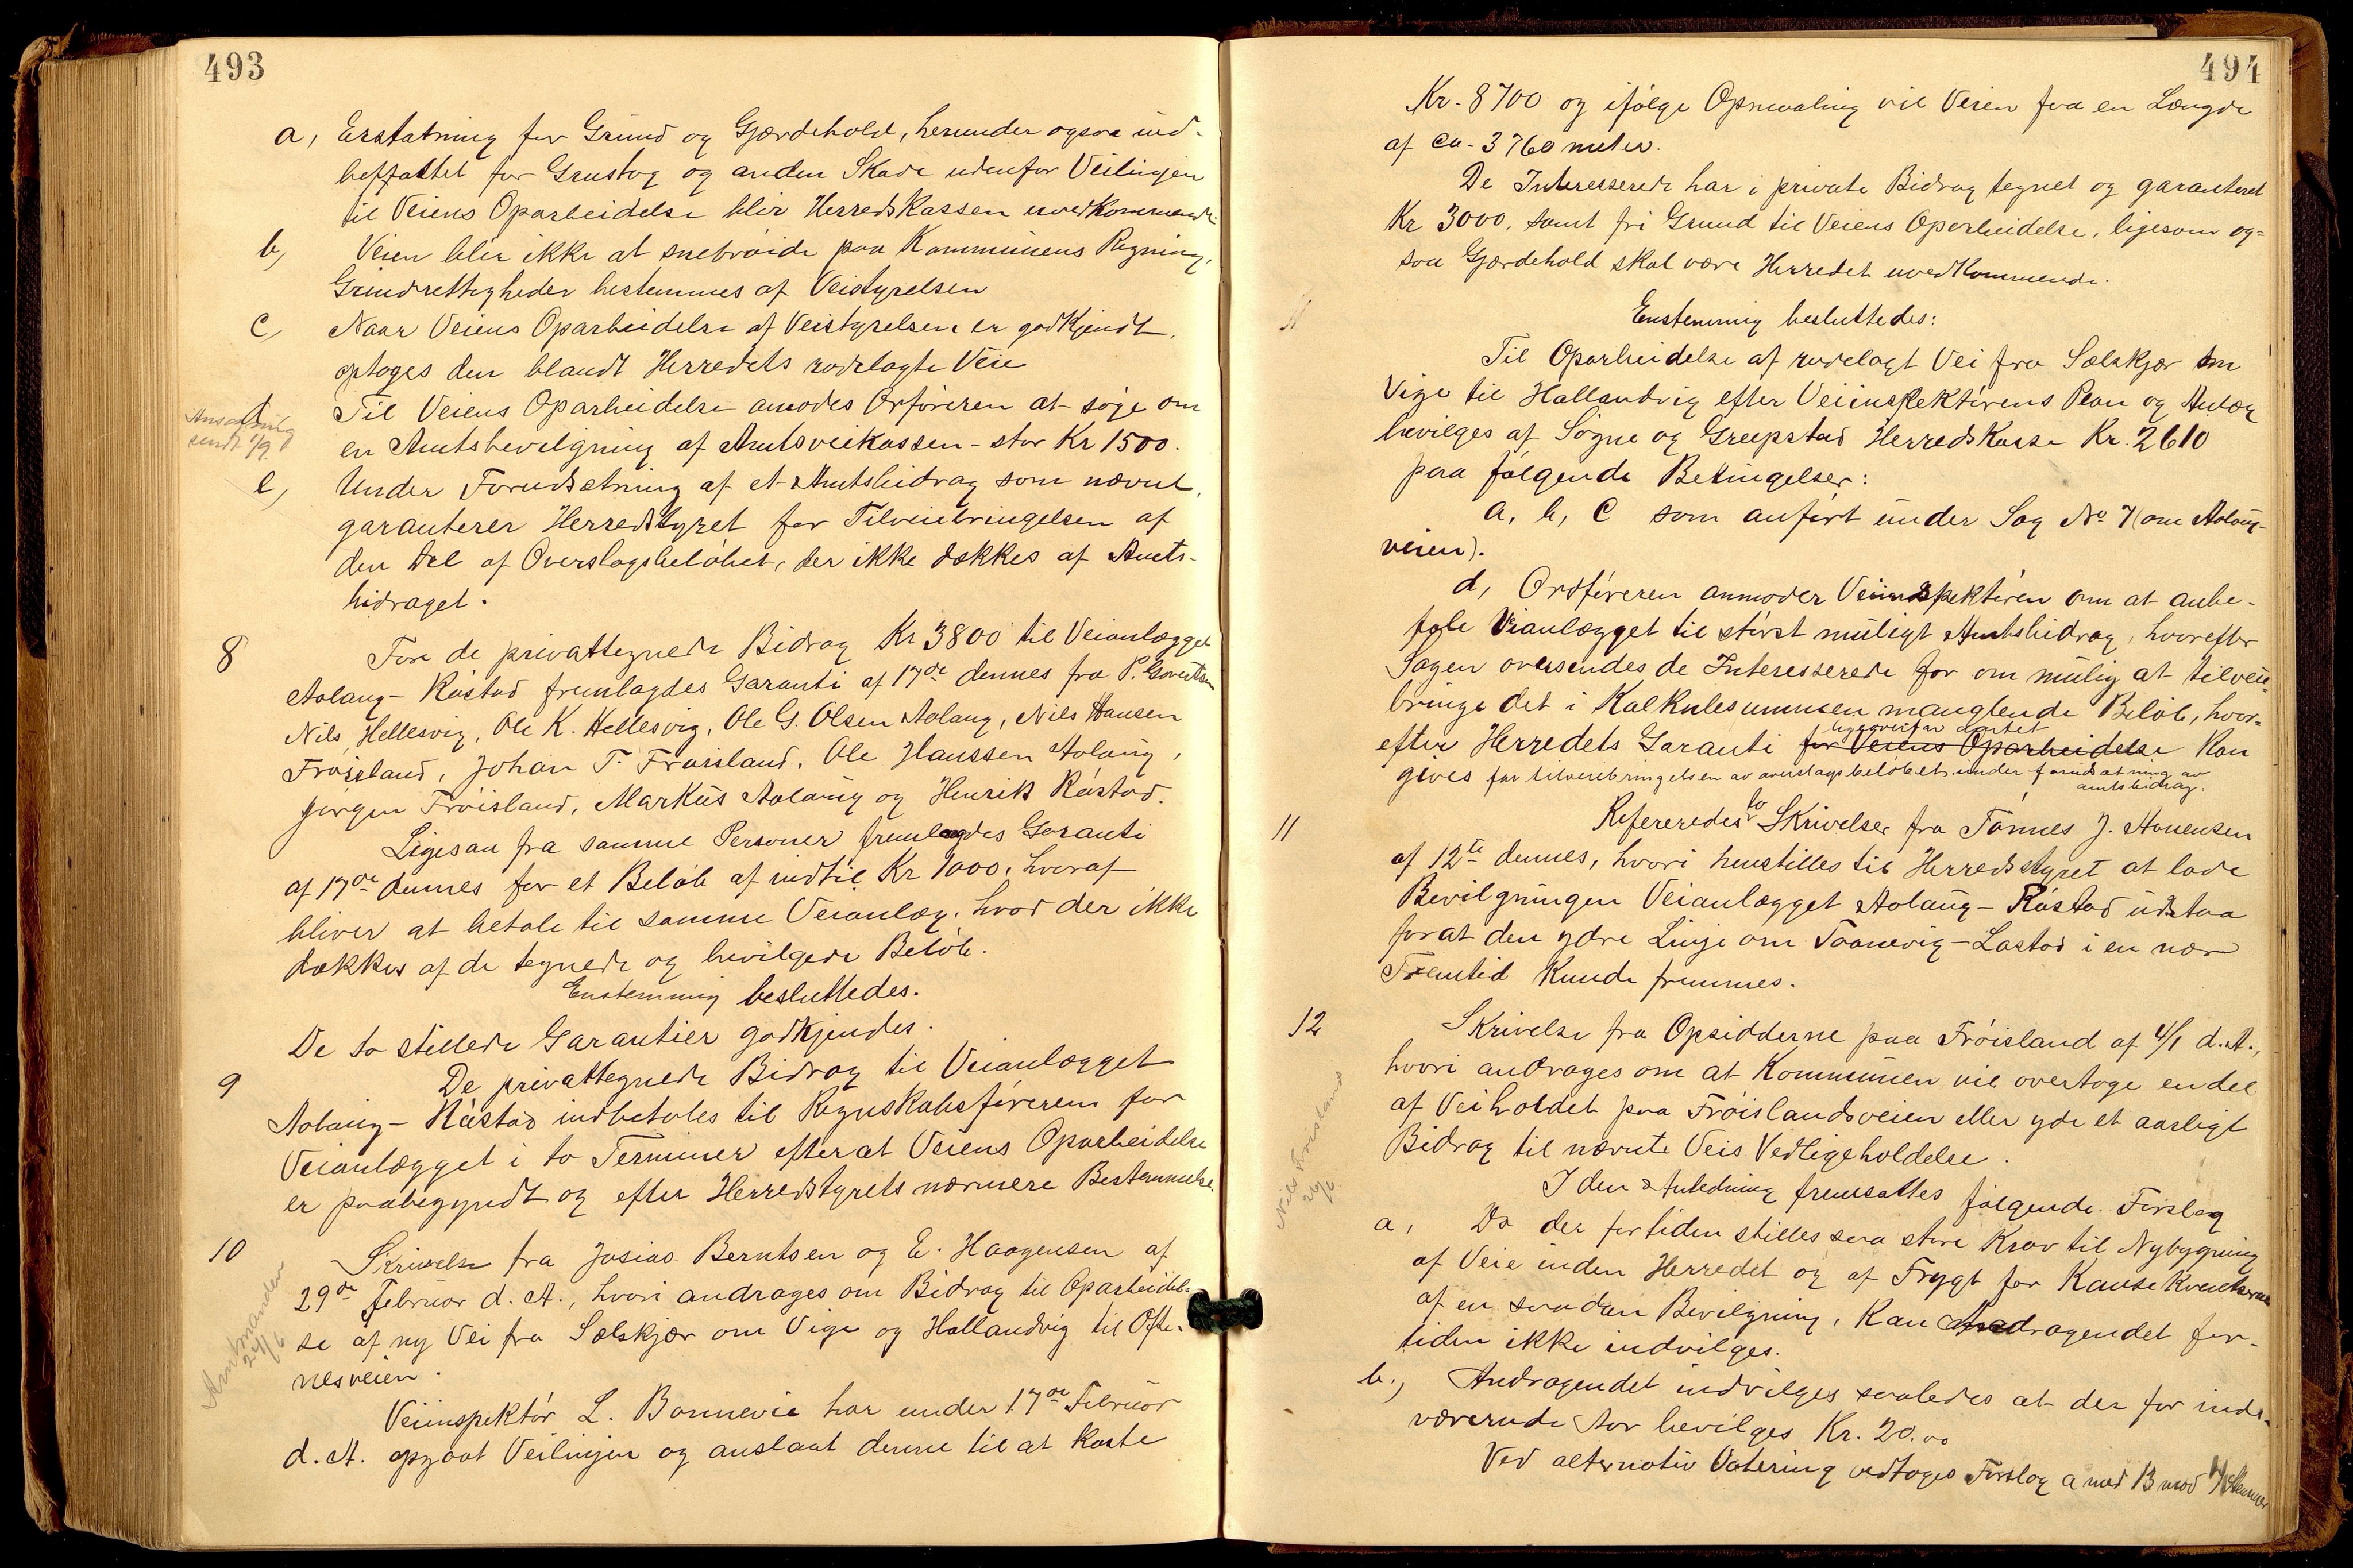 493
a, Erstatning for Grund og Gjærdehold, herunder ogsaa ind-
beffattet for Grustag og anden Skade udenfor Veilinjen
til Veiens Oparbeidelse blir Herredskassen uvedkommende.
b, Veien blir ikke at snebrøide paa Kommunens Regning,
Grindrettigheder bestemmes af Veistyrelsen
c, Naar Veiens Oparbeidelse af Veistyrelsen er godkjendt,
optages den blandt Herredets rodelagte Veie
d Til Veiens Oparbeidelse amodes Orføreren at søge om
Ansøgning
sendt 1/9
en Amtsbevilgning af Amtsveikassen - stor Kr 1500.
e, Under Forudsætning af et Amtsbidrag som nævnt,
garanterer Herredstyret for Tilveiebringelsen af
den Del af Overslagsbeløbet, der ikke dækkes af Amts-
bidraget.
8 Fore de privattegnede Bidrag Kr 3800 til Veianlægget
Aolang - Råstad fremlagdes Garanti af 17de dennes fra P. Govertsen
Nils Hellesvig, Ole K. Hellesvig, Ole G. Olsen Aolang, Nils Hansen
Frøisland, Johan T. Frøisland, Ole Hanssen Aolang,
Jørgen Frøisland, Markus Aolang og Henrik Råstad.
Ligesaa fra samme Personer fremlagdes Garanti
af 17de dennes for et Beløb af indtil Kr 1000, hvoraf
bliver at betale til samme Veianlæg, hvad der ikke
dækkes af de tegnede og bevilgede Beløb.
Enstemmig besluttedes.
De to stillede Garantier godkjendes.
9 De privattegnede Bidrag til Veianlægget
Aolang - Råstad indbetales til Regnskabsføreren for
Veianlægget i to Terminer efterat Veiens Oparbeidelse
er paabegyndt og efter Herredstyrets nærmere Bestemmelse.
10 Skrivelse fra Josias Berntsen og E. Haagensen af
29de Februar d. A., hvori andrages om Bidrag til Oparbeidel-
se af ny Vei fra Sælskjær om Vige og Hallandvig til Ofte-
nesveien.
Amtmanden
24/6
Veiinspektør L. Bonnevie har under 17de Februar
d. A. opgaat Veilinjen og anslaat denne til at koste
494
Kr. 8700 og ifølge Opmaaling vil Veien faa en Længde
af ca. 3760 meter.
De Interesserede har i private Bidrag tegnet og garanteret
Kr 3000, samt fri Grund til Veiens Oparbeidelse, ligesom og-
saa Gjærdehold skal være Herredet uvedkommende.
Enstemmig besluttedes:
Til Oparbeidelse af rodelagt Vei fra Sælskjær om
Vige til Hallandvig efter Veiinspektørens Plan og Anlæg
bevilges af Søgne og Greipstad Herredskasse Kr. 2610
paa følgende Betingelser:
a, b, c som anført under Sag No 7 (om Aolang-
veien).
d, Ordføreren anmoder Veiinspektøren om at anbe-
fale Veianlægget til størst muligt Amtsbidrag, hvorefter
Sagen oversendes de Interesserede for om mulig at tilveie-
bringe det i Kalkulesummen manglende Beløb, hvor-
efter Herredets Garanti for Veiens Oparbeidelse kan
gives for tilveiebringelsen av overslagsbeløbet under forudsætning av
amtsbidrag.
11 Refereredes to Skrivelser fra Tønnes J. Aanensen
af 12te dennes, hvori henstilles til Herredsstyret at lade
Bevilgningen Veianlægget Aolang - Råstad udstaa
forat den ydre Linje om Taanevig - Lastad i en nær
Fremtid kunde fremmes.
12 Skrivelse fra Opsidderne paa Frøisland af 4/1 d. A.,
hvori andrages om at Kommunen vil overtage endel
af Veiholdet paa Frøislandsveien eller yde et aarligt
Bidrag til nævnte Veis Vedligeholdelse.
Nils Frøisland
26/6
I den Anledning fremsattes følgende Forslag
a, Da der fortiden stilles saa store Krav til Nybygning
af Veie inden Herredet og af Frygt for Konsekventserne
af en saadan Bevilgning, kan Andragendet for-
tiden ikke indvilges.
b., Andragendet indvilges saaledes at der for inde-
værende Aar bevilges Kr. 20.00
Ved alternativ Votering vedtoges Forslag a med 13 mod 4 Stemmer